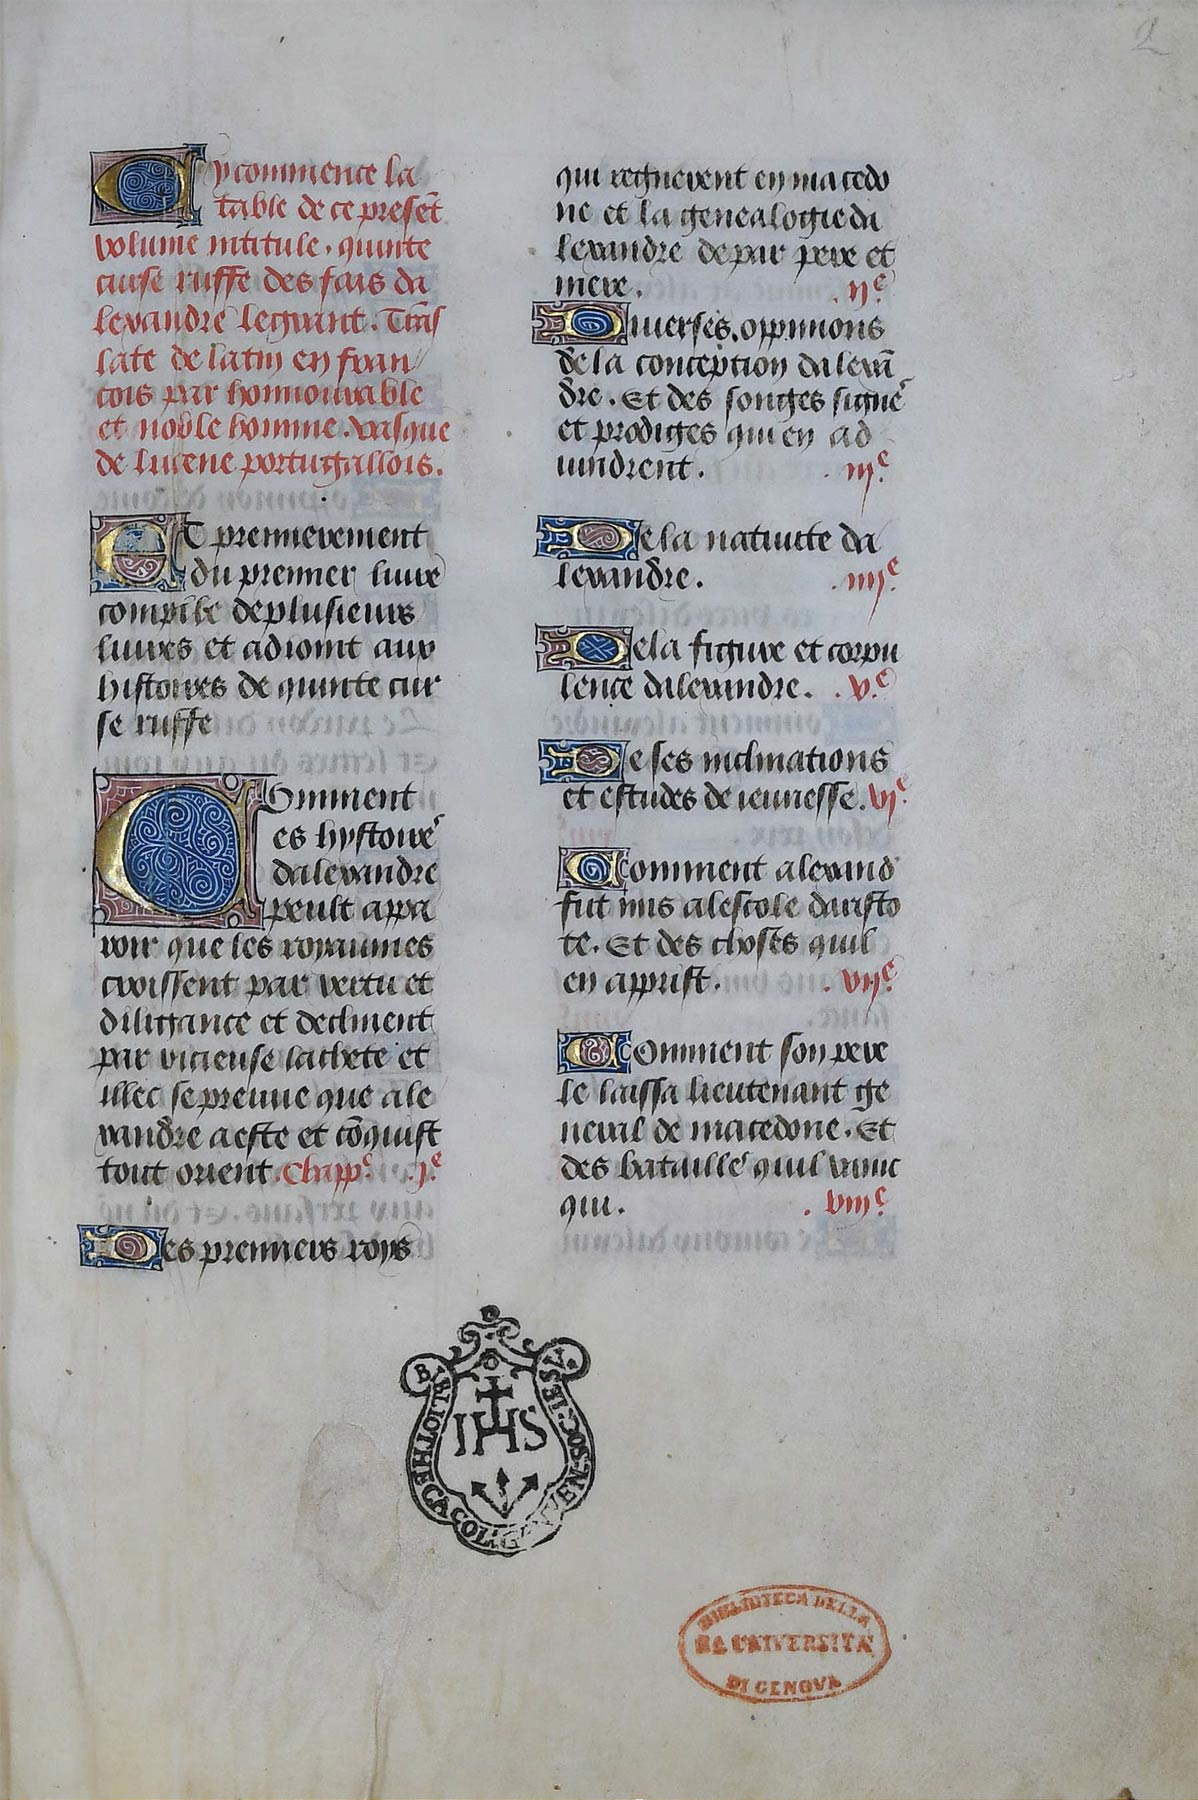 2
Cy commence la
table de ce preset̄
volume intitule. quinte
curse ruffe des fais da
lexandre legrant. Trās
late de latin en fran
cois par honnourable
et noble homme. vasque
de lucene portugallois.
ET premierement
du premier liure
compile de plusieurs
liures et adioint aux
histoires de quinte cur
se ruffe
Comment
les hystoires
dalexandre
peult appa
roir que les royaumes
croissent par vertu et
diligance et declinent
par vicieuse lachete et
illec se preuue que ale
xandre a este et cōquist
tout orient. Chappe. .je.
Des premiers roys
qui regnerent en macedo
ne et la genealogie da
lexandre de par pere et
mere. .ije.
Diuerses. oppinions
de la conception dalexā
dre. Et des songes signe
et prodiges qui en ad
uindrent. .iije.
De la natiuite da
lexandre. .iiije.
De la figure et corpu
lence dalexandre. .ve.
De ses inclinations
et estudes de ieunesse. vje.
Comment alexand
fut mis a lescole daristo
te. Et des choses quil
en apprist. .vije.
Comment son pere
le laissa lieutenant ge
neral de macedone. Et
des bataille quil vainc
qui. .viije.
IHS
BIBLIOTHECA COL. SOC. IESV.
BIBLIOTECA DELLA
RA UNIVERSITÀ
DI GENOVA